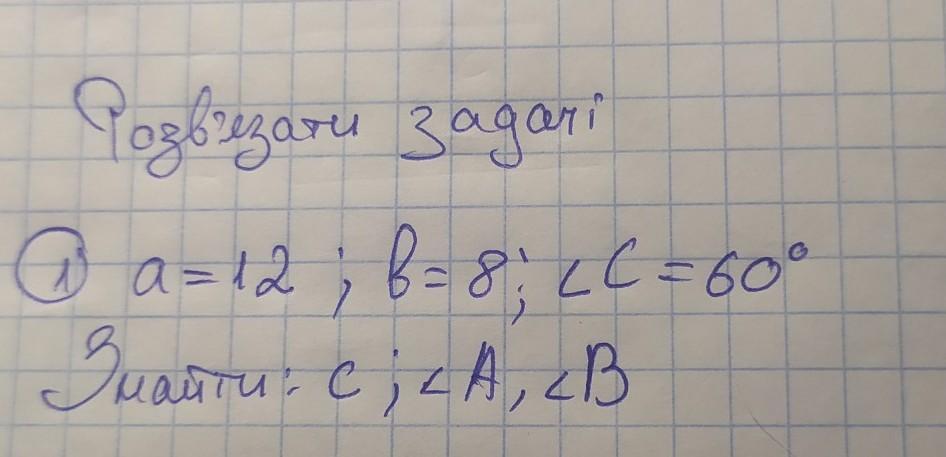 Розв'язати задачі
① a=12 ; b=8; ∠C=60°
Знайти: c; ∠A, ∠B